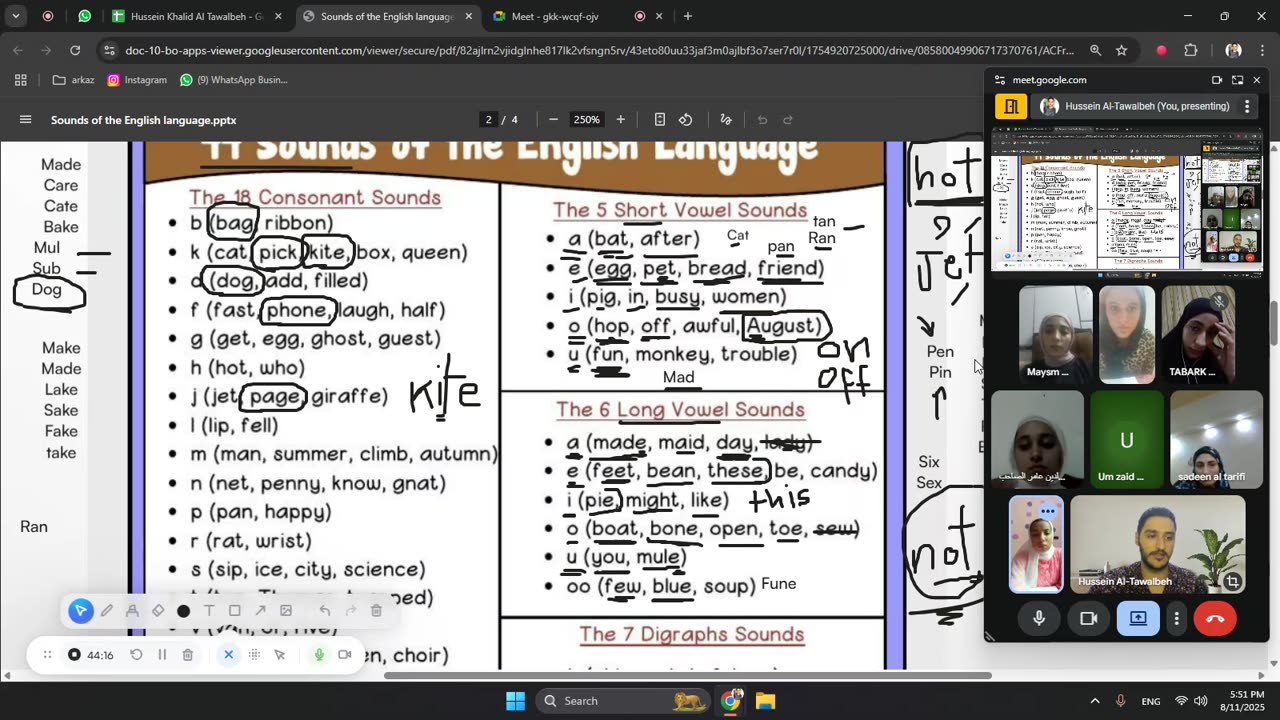 Hussein Khalid Al Tawalbeh - G
Sounds of the English language
Meet - gkk-wcqf-ojv
doc-10-bo-apps-viewer.googleusercontent.com/viewer/secure/pdf/82ajlrn2vjidglnhe817lk2vfsngn5rv/43eto80uu33jaf3m0ajlbf3o7ser7r0l/1754920725000/drive/08580049906717370761/ACFr...
arkaz
Instagram
(9) WhatsApp Busin...
Sounds of the English language.pptx
2 / 4
250%
meet.google.com
Hussein Al-Tawalbeh (You, presenting)
44 Sounds of the English Language
Made
Care
Cate
Bake
Mul
Sub
Dog
Make
Made
Lake
Sake
Fake
take
Ran
The 18 Consonant Sounds
b (bag, ribbon)
k (cat, pick, kite, box, queen)
d (dog, add, filled)
f (fast, phone, laugh, half)
g (get, egg, ghost, guest)
h (hot, who)
j (jet, page, giraffe)
l (lip, fell)
m (man, summer, climb, autumn)
n (net, penny, know, gnat)
p (pan, happy)
r (rat, wrist)
s (sip, ice, city, science)
en, choir)
Kite
The 5 Short Vowel Sounds
a (bat, after)
e (egg, pet, bread, friend)
i (pig, in, busy, women)
o (hop, off, awful, August)
u (fun, monkey, trouble)
Cat
pan
tan
Ran
Mad
on
off
The 6 Long Vowel Sounds
a (made, maid, day, lady)
e (feet, bean, these, be, candy)
i (pie, might, like)
this
o (boat, bone, open, toe, sew)
u (you, mule)
oo (few, blue, soup)
Fune
The 7 Digraphs Sounds
hot
Jet
Pen
Pin
Six
Sex
not
Maysm ...
TABARK ...
U
Um zaid ...
sadeen al tarifi
Hussein Al-Tawalbeh
44:16
Search
ENG
5:51 PM
8/11/2025